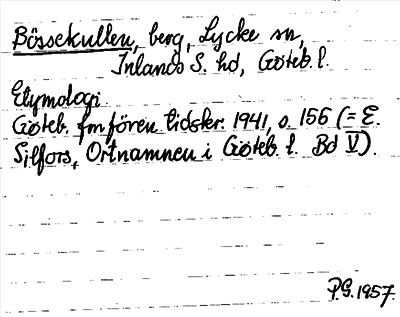 Bössekullen, berg, Lycke sn,
Inlands S. hd, Göteb. l.
Etymologi
Göteb. fmfören tidskr. 1941, s. 156 (= E.
Silfors, Ortnamnen i Göteb. l. Bd V).
P.G. 1957.